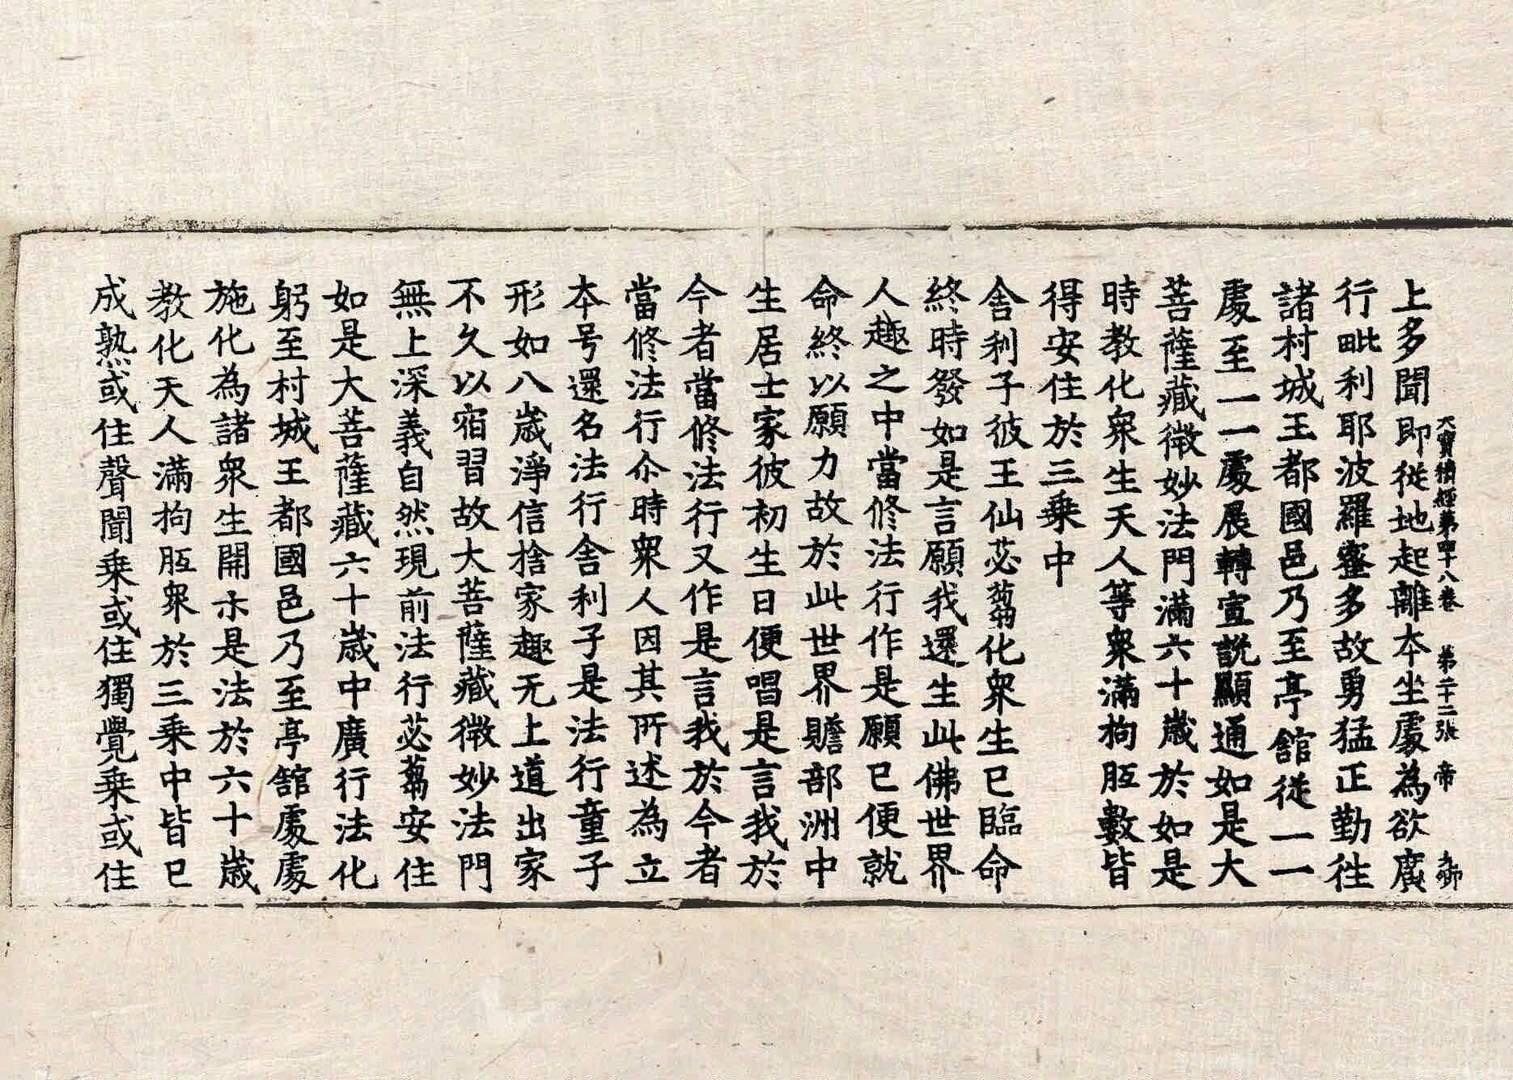 大寶積經第四十八卷　第二十二張　帝
上多聞即從地起離夲坐處為欲廣
行毗利耶波羅蜜多故勇猛正勤往
諸村城王都國邑乃至亭館從一一
處至一一處展轉宣說顯通如是大
菩薩藏微妙法門滿六十歲於如是
時教化衆生天人等衆滿拘胝數皆
得安住於三乗中
舍利子彼王仙苾芻化衆生已臨命
終時發如是言願我還生此佛世界
人趣之中當修法行作是願已便就
命終以願力故於此世界贍部洲中
生居士家彼初生日便唱是言我於
今者當修法行又作是言我於今者
當修法行尒時衆人因其所述為立
夲号還名法行舍利子是法行童子
形如八歲淨信捨家趣无上道出家
不久以宿習故大菩薩藏微妙法門
無上深義自然現前法行苾芻安住
如是大菩薩藏六十歲中廣行法化
躬至村城王都國邑乃至亭館處處
施化為諸衆生開示是法於六十歲
教化天人滿拘胝衆於三乗中皆已
成熟或住聲聞乗或住獨覺乗或住